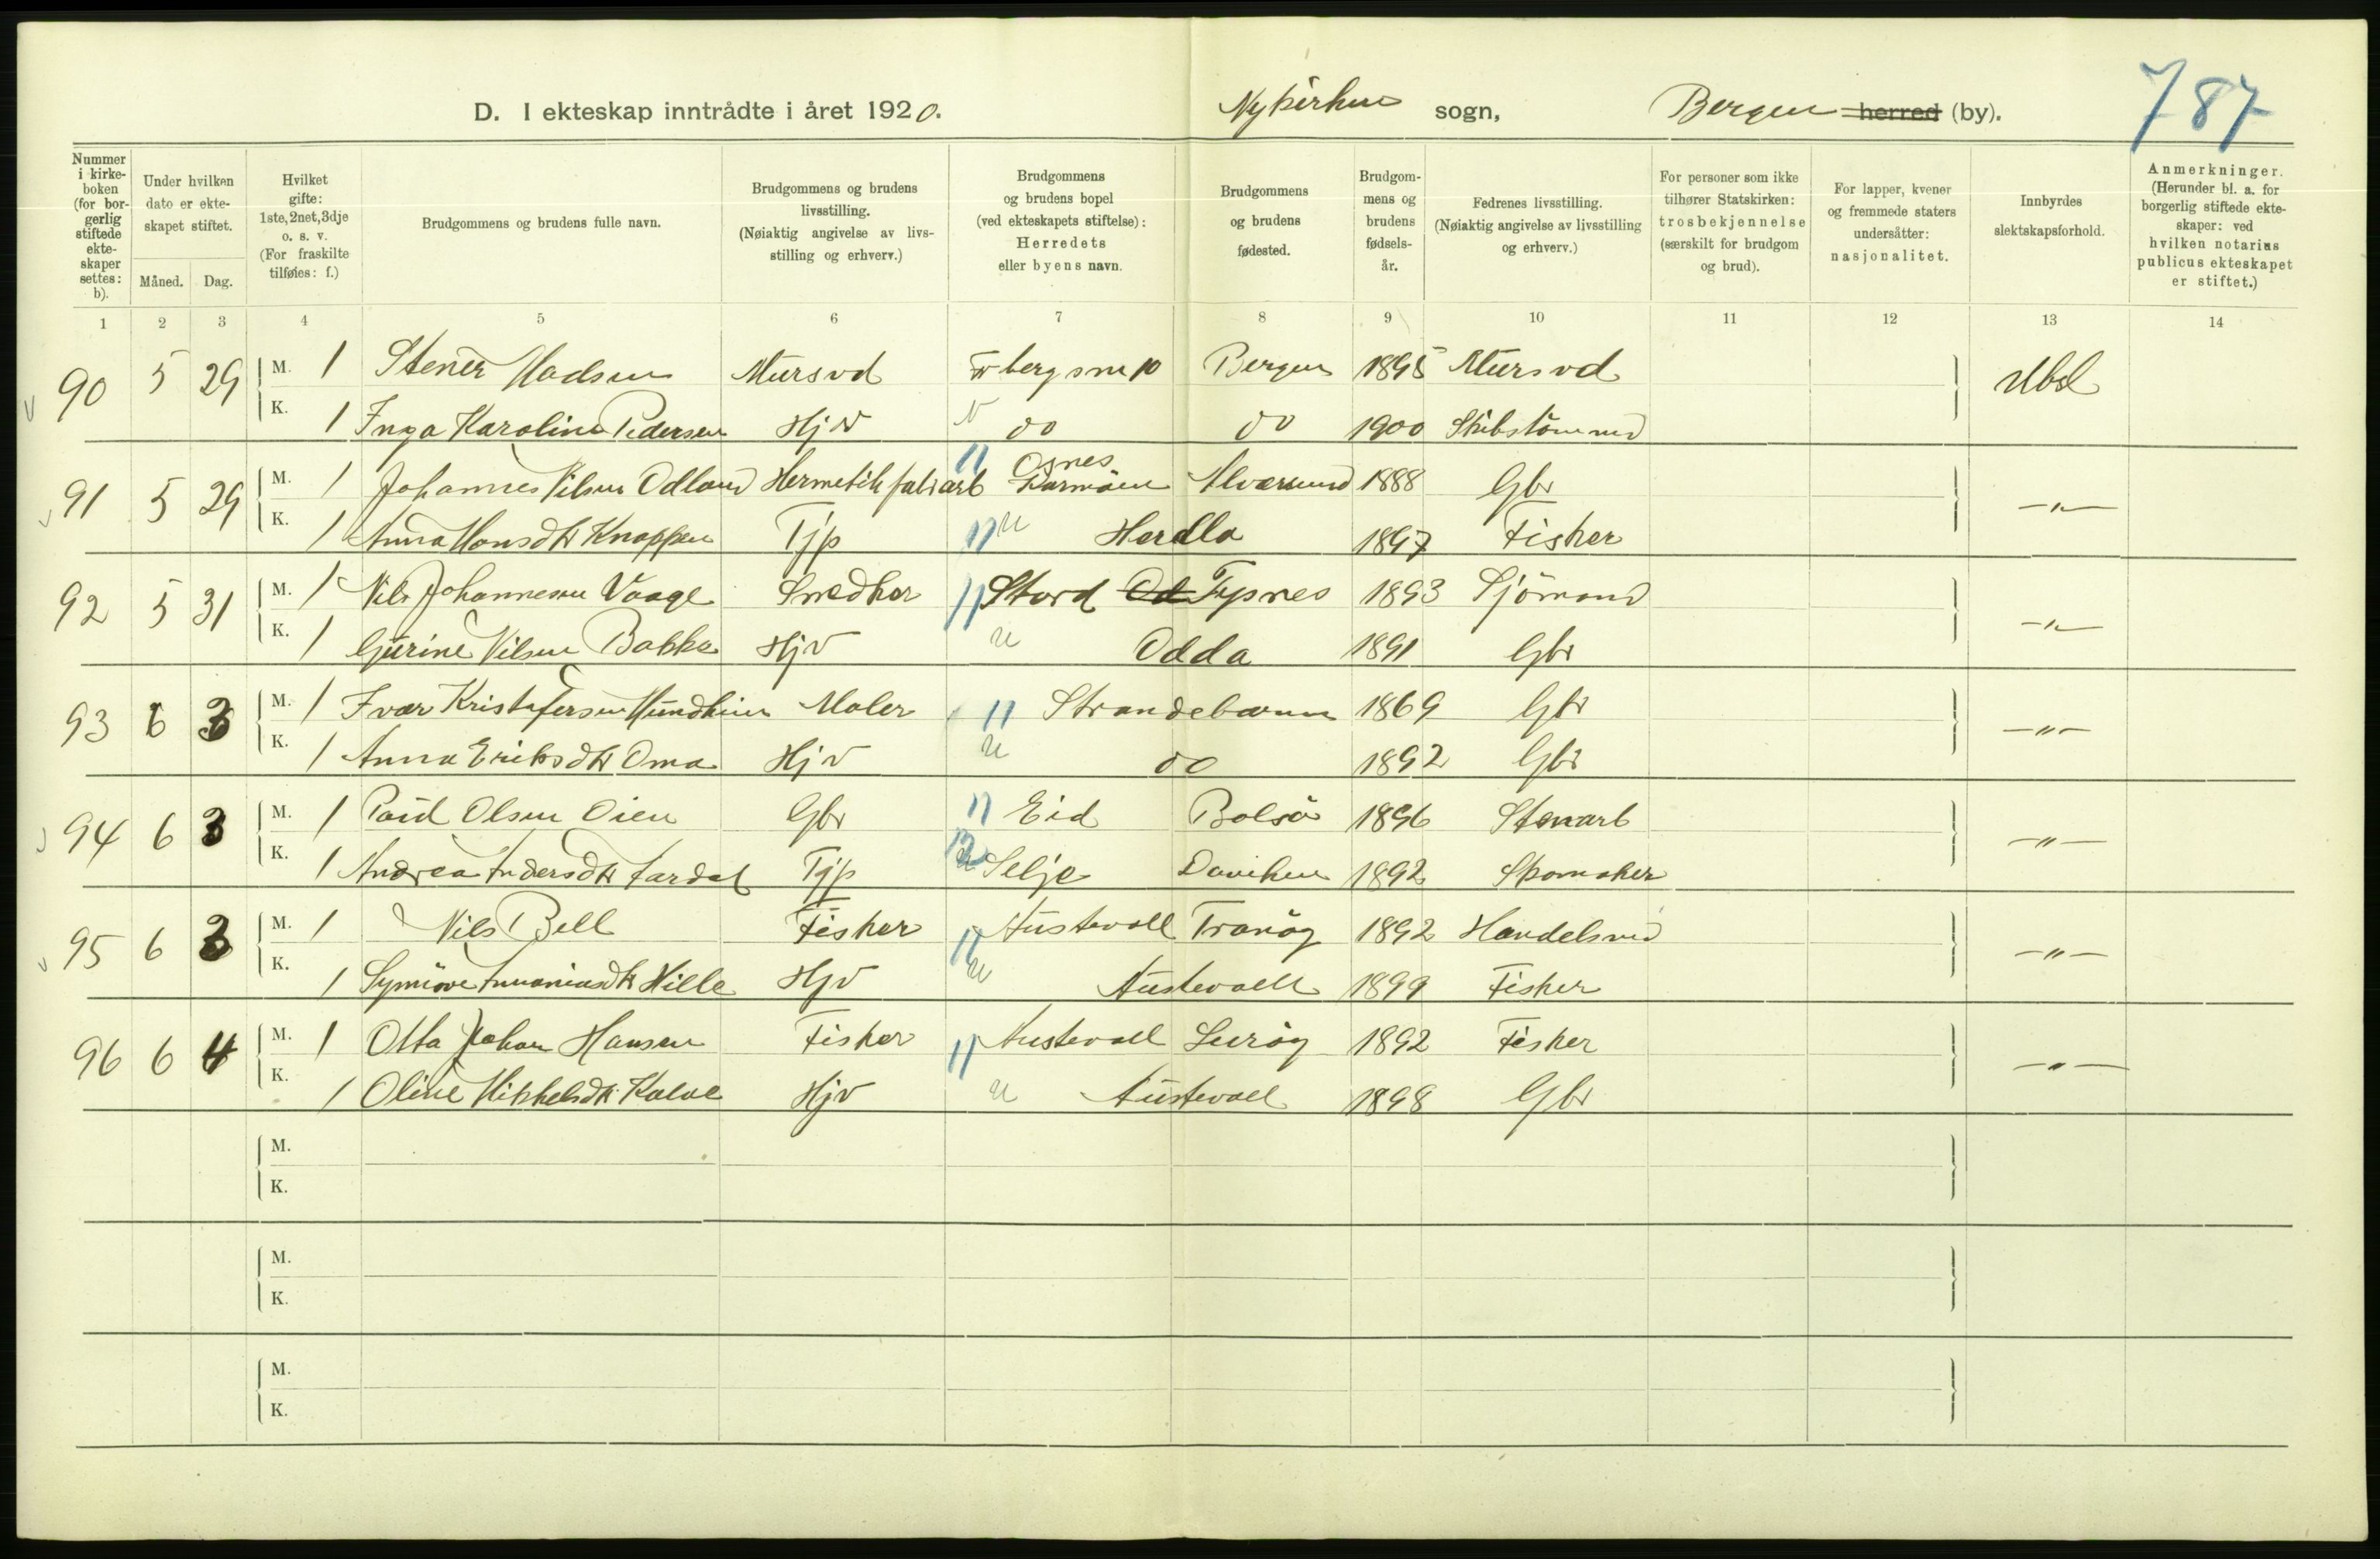 787
D. I ekteskap inntrådte i året 1920. Nykirken sogn, Bergen herred (by).
Nummer i kirkeboken (for borgerlig stiftede ekteskaper settes: b).
Under hvilken dato er ekteskapet stiftet.
Måned. Dag.
Hvilket gifte: 1ste, 2net, 3dje o. s. v. (For fraskilte tilføies: f.)
Brudgommens og brudens fulle navn.
Brudgommens og brudens livsstilling. (Nøiaktig angivelse av livsstilling og erhverv.)
Brudgommens og brudens bopel (ved ekteskapets stiftelse): Herredets eller byens navn.
Brudgommens og brudens fødested.
Brudgommens og brudens fødselsår.
Fedrenes livsstilling. (Nøiaktig angivelse av livsstilling og erhverv.)
For personer som ikke tilhører Statskirken: trosbekjennelse (særskilt for brudgom og brud).
For lapper, kvener og fremmede staters undersåtter: nasjonalitet.
Innbyrdes slektskapsforhold.
Anmerkninger. (Herunder bl. a. for borgerlig stiftede ekteskaper: ved hvilken notarius publicus ekteskapet er stiftet.)
1 2 3 4 5 6 7 8 9 10 11 12 13 14
90 5 29 M. 1 Stener Madsen Mursvd Bergen 1895 Mursvd Ubsl
K. 1 Inga Karoline Pedersen Hjv do do 1900 Skibstömmd
91 5 29 M. 1 Johannes Nilsen Odland Hermetikfabrarb 11 Osnes Karmöen Alversund 1888 Gbr —"—
K. 1 Anna Hansdtr Knappen Tjp 11 u Herdla 1897 Fisker
92 5 31 M. 1 Nils Johannesen Vaage Snedker 11 Stord Od Tysnes 1893 Sjömand —"—
K. 1 Gurine Nilsen Bakke Hjv u Odda 1891 Gbr
93 6 3 M. 1 Ivar Kristofersen Mundheim Maler 11 Strandebarm 1869 Gbr —"—
K. 1 Anna Eriksdtr Oma Hjv u do 1892 Gbr
94 6 3 M. 1 Paul Olsen Oien Gbr 11 Eid Bolsö 1896 Stenarb —"—
K. 1 Andrea Andersdtr Fardal Tjp 12 Selje Daviken 1892 Skomaker
95 6 3 M. 1 Nils Bell Fisker 11 Austevoll Tranöy 1892 Handelsmd —"—
K. 1 Synnöve Ananiasdtr Hille Hjv u Austevoll 1899 Fisker
96 6 4 M. 1 Otto Johan Hansen Fisker 11 Austevoll Luröy 1892 Fisker —"—
K. 1 Oline Mikkelsdtr Kalve Hjv u Austevoll 1898 Gbr
M.
K.
M.
K.
M.
K.